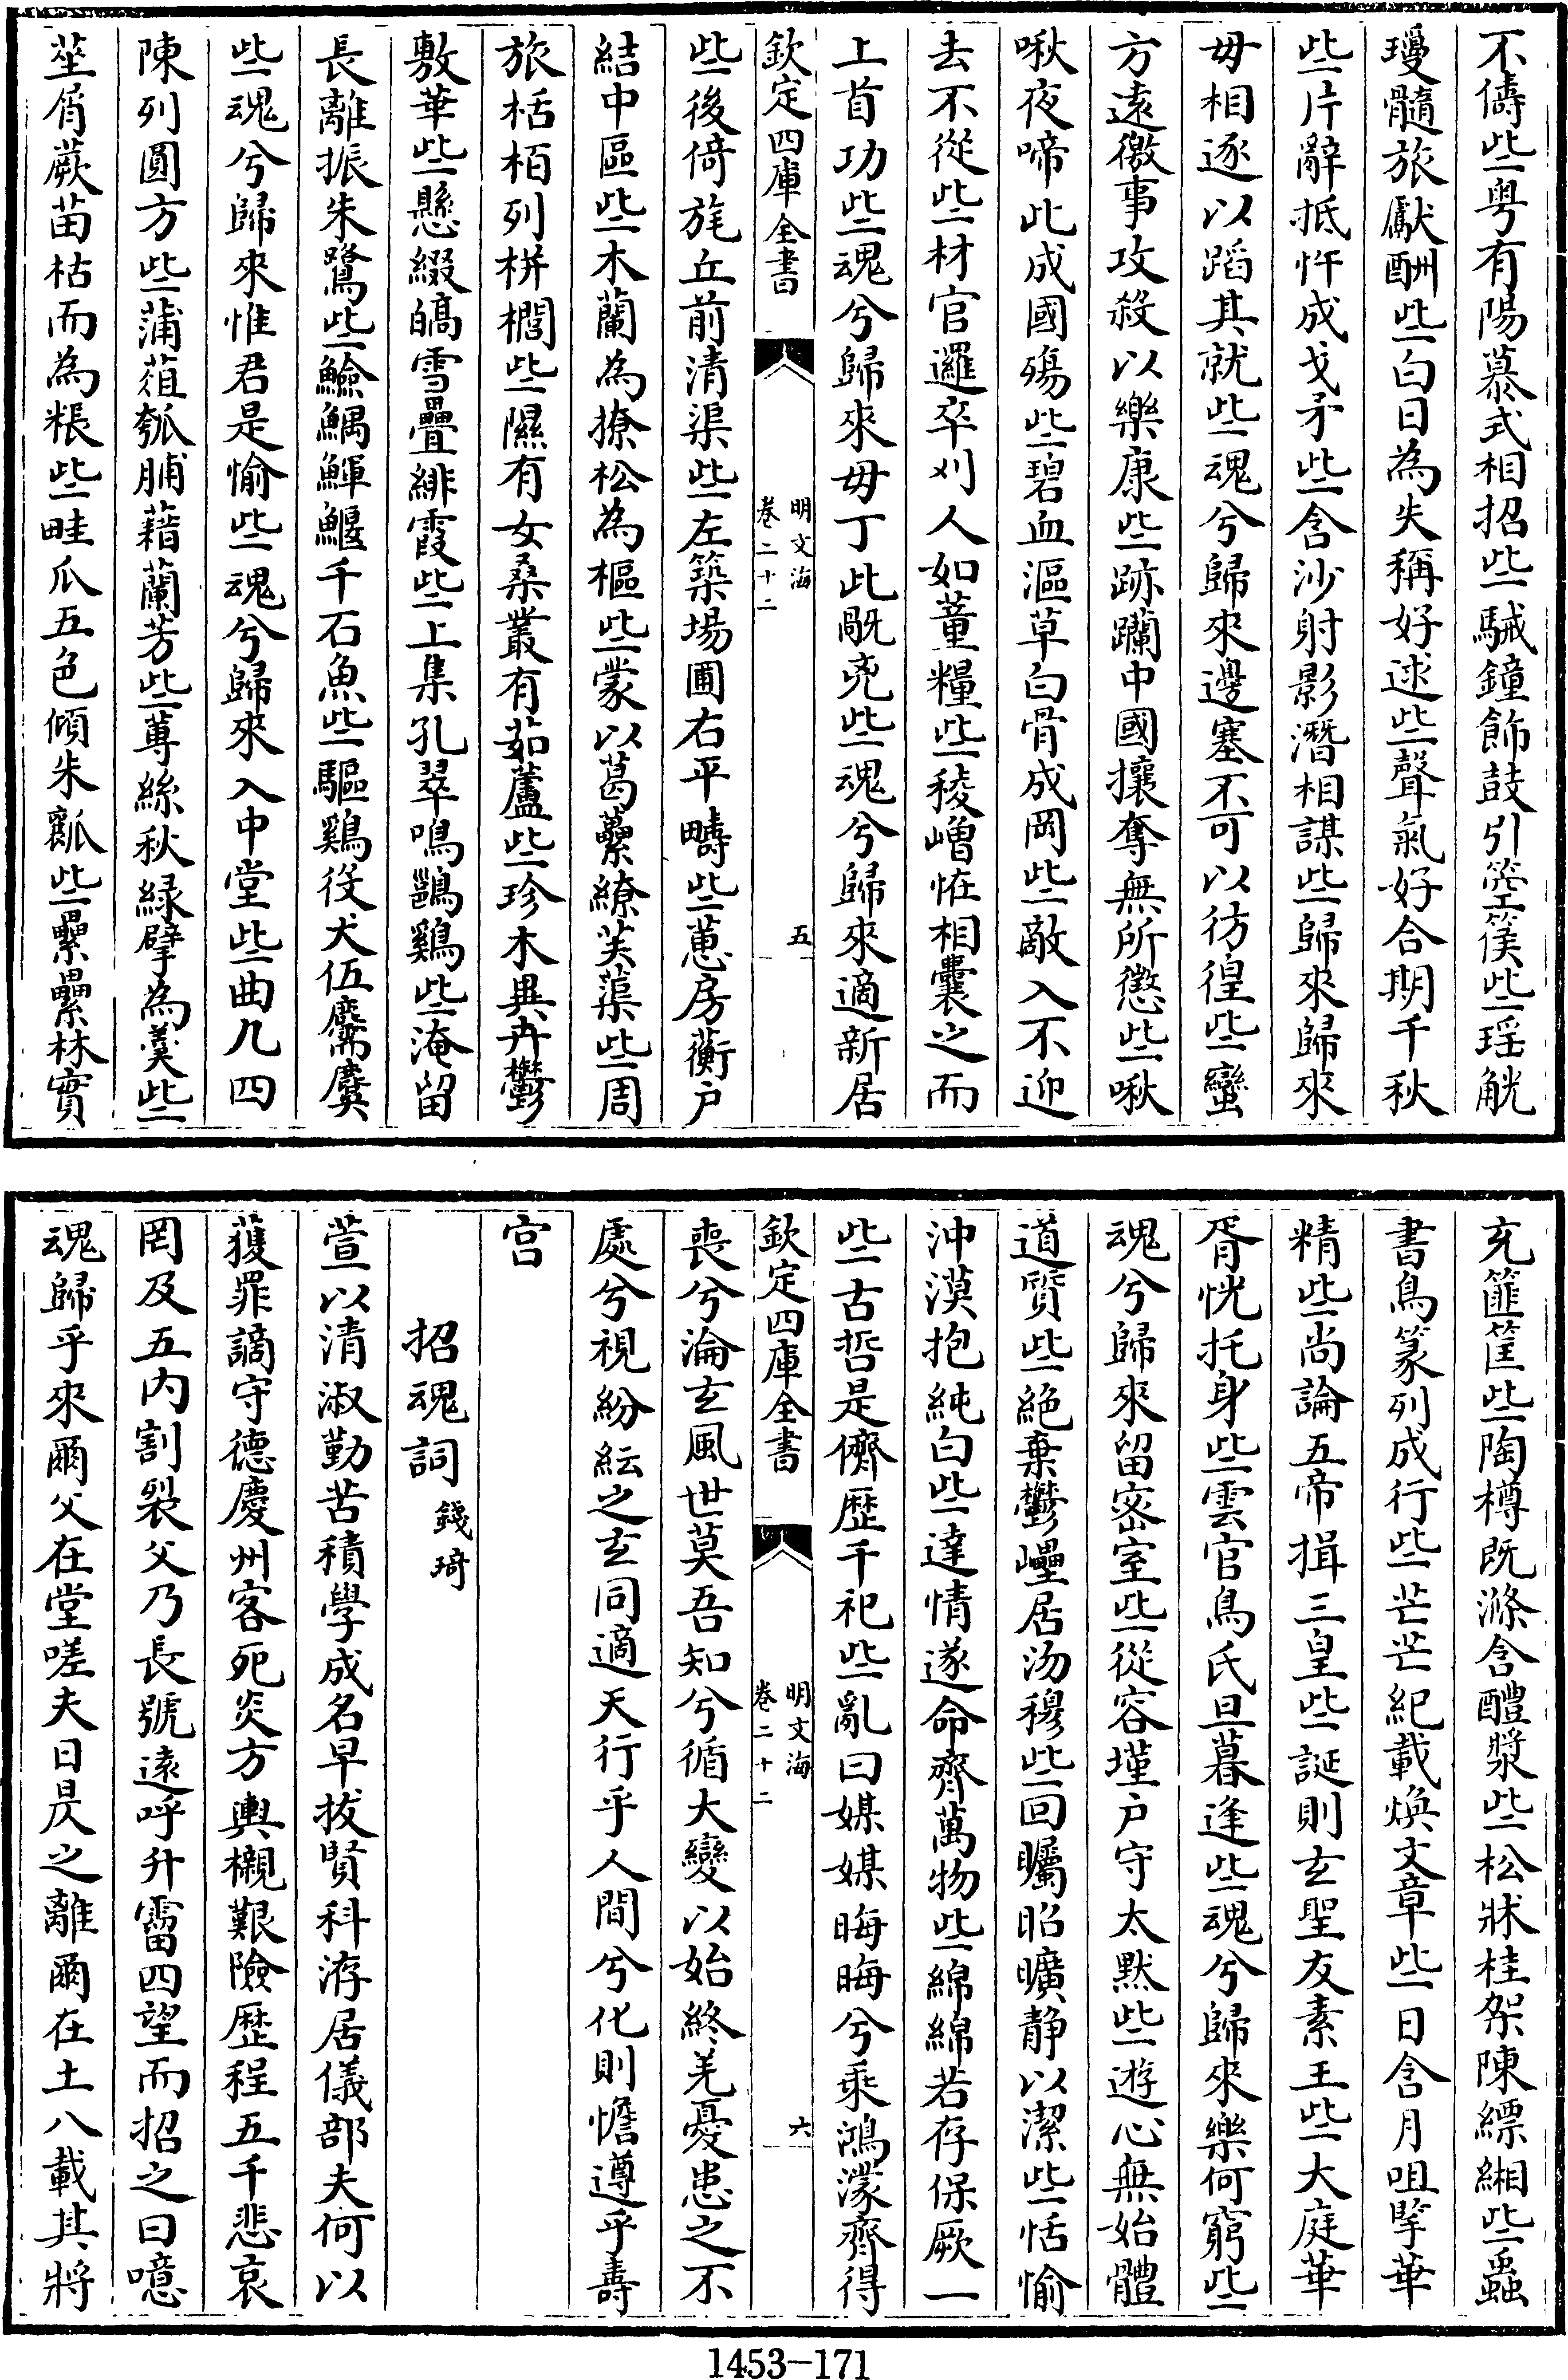 不儔些粤有陽慕式相招些駴鐘飾鼓引箜篌些瑶觥
瓊髓旅獻酬些白日為失稱好逑些聲氣好合期千秋
些片辭抵忤成戈矛些含沙射影潛相謀些歸來歸來
毋相逐以蹈其就些魂兮歸來邊塞不可以彷徨些蠻
方遠徼事攻殺以樂康些跡躪中國攘奪無所懲些啾
啾夜啼此成國殤些碧血漚草白骨成岡些敵入不迎
去不從些材官邏卒刈人如薑糧些稜嶒怪相囊之而
上首功些魂兮歸來毋丁此戕兇些魂兮歸來適新居
欽定四庫全書
明文海
卷二十二
五
些後倚旄丘前清渠些左築場圃右平疇些蕙房蘅户
結中區些木蘭為橑松為樞些蒙以葛虆繚芙蕖些周
旅栝栢列栟櫚些隰有女桑叢有茹藘些珍木異卉鬱
敷華些懸綴皜雪疊緋霞些上集孔翠鳴鸐鷄些淹留
長離振朱鷺些鱠鰅鯶鰋千石魚些驅鷄役犬伍麏麌
些魂兮歸來惟君是愉些魂兮歸來入中堂些曲几四
陳列圓方些蒲葅瓠脯藉蘭芳些蓴絲秋緑擘為羮些
莝屑蕨苗枯而為粻些畦瓜五色傾朱瓤些纍纍林實
充篚筐些陶樽既滌含醴漿些松牀桂架陳縹緗些蟲
書鳥篆列成行些芒芒紀載煥文章些日含月咀挐華
精些尚論五帝揖三皇些誕則玄聖友素王些大庭華
胥恍托身些雲官鳥氏旦暮逢些魂兮歸來樂何窮些
魂兮歸來留宻室些從容墐户守太默些遊心無始體
道質些絶棄鬱壘居沕穆些回矚昭曠静以潔些恬愉
沖漠抱純白些達情遂命齊萬物些綿綿若存保厥一
些古哲是儕歴千祀些亂曰媒媒晦晦兮乘鴻濛齊得
欽定四庫全書
明文海
卷二十二
六
喪兮淪玄風世莫吾知兮循大變以始終羌憂患之不
處兮視紛紜之玄同適天行乎人間兮化則憺遵乎壽
宫
招魂詞 錢琦
萱以清淑勤苦積學成名早拔賢科游居儀部夫何以
獲罪謫守德慶州客死炎方輿櫬艱險歴程五千悲哀
罔及五内割裂父乃長號遠呼升霤四望而招之曰噫
魂歸乎來爾父在堂嗟夫日昃之離爾在土八載其將
1453-171